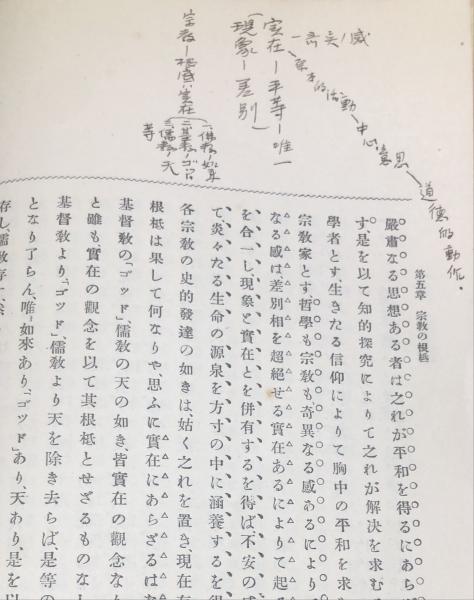 一奇異ノ感
根本的活動―中心意思―道徳的動作。
実在―平等―唯一
(現象―差別)
宗教―根底ハ実在
一、佛教―如来
二、基教―ゴッド
三、儒教―天
等
第五章 宗教の根柢
嚴肅なる思想ある者は之れが平和を得るにあら
す、是を以て知的探究によりて之れが解決を求む
學者とす、生きたる信仰によりて胸中の平和を求
宗教家とす、哲學も宗教も奇異なる感あるにより
なる感は差別相を超絶せる實在あるによりて起
を合一し、現象と實在とを併有するを得ば不安の
て、炎々たる生命の源泉を方寸の中に涵養するを得
各宗教の史的發達の如きは、姑く之れを置き、現在
根柢は果して何なりや、思ふに實在にあらざるは
基督教の「ゴッド」、儒教の天の如き、皆實在の觀念な
と雖も、實在の觀念を以て其根柢とせざるものな
基督教より「ゴッド」、儒教より天を除き去らば、是等の
となり了らん、唯如來あり、「ゴッド」あり、天あり、是を以
存し、儒教存す